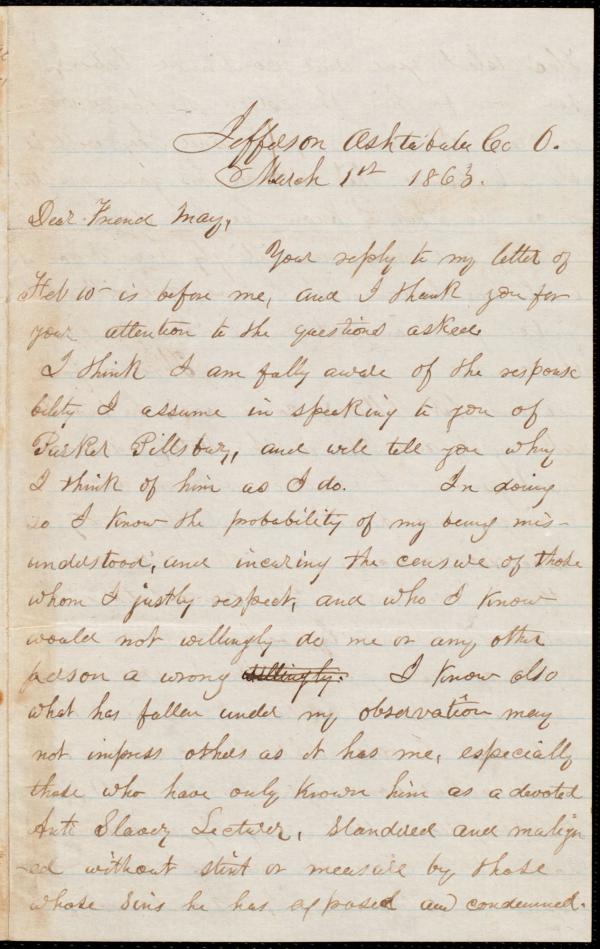 Jefferson Ashtabula Co O.
March 1st 1863.
Dear Friend May,
Your reply to my letter of
Feb 10 - is before me, and I thank you for
your attention to the questions asked.
I think I am fully aware of the response
bility I assume in speaking to you of
Parker Pillsbury, and will tell you why
I think of him as I do. In doing
so I know the probability of my being mis-
understood, and incuring the censure of those
whom I justly respect, and who I know
would not willingly do me or any other
person a wrong willingly. I know also
what has fallen under my observation may
not impress others as it has me, especially
those who have only known him as a devoted
Anti Slavery Lecturer, slandered and malign
-ed without stint or measure by those
whose sins he has exposed and condemned.